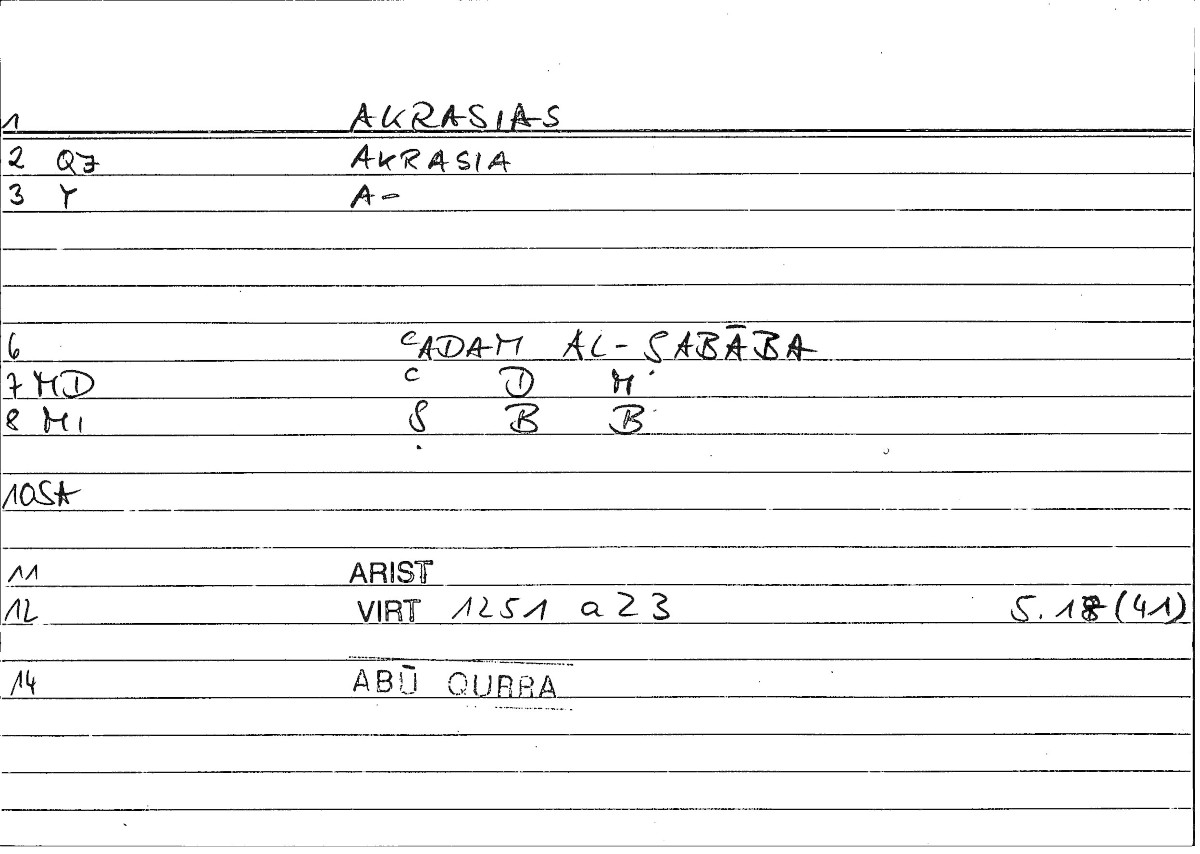 1 AKRASIAS
2 Q7 AKRASIA
3 Y A-
6 ʿADAM AL-ṢABĀBA
7 MD ʿ D M
8 MI Ṣ B B
10SA
11 ARIST
12 VIRT 1251 a23 S. 18 (41)
14 ABŪ QURRA